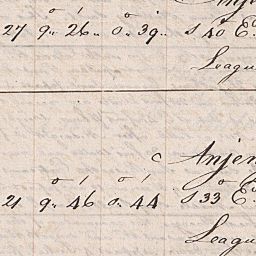 Anje
27 9°. 26'. 0°. 39. S 40 E
Leagu
c Anjen
21 9°. 46' 0°. 44' S 33° E
Leagu